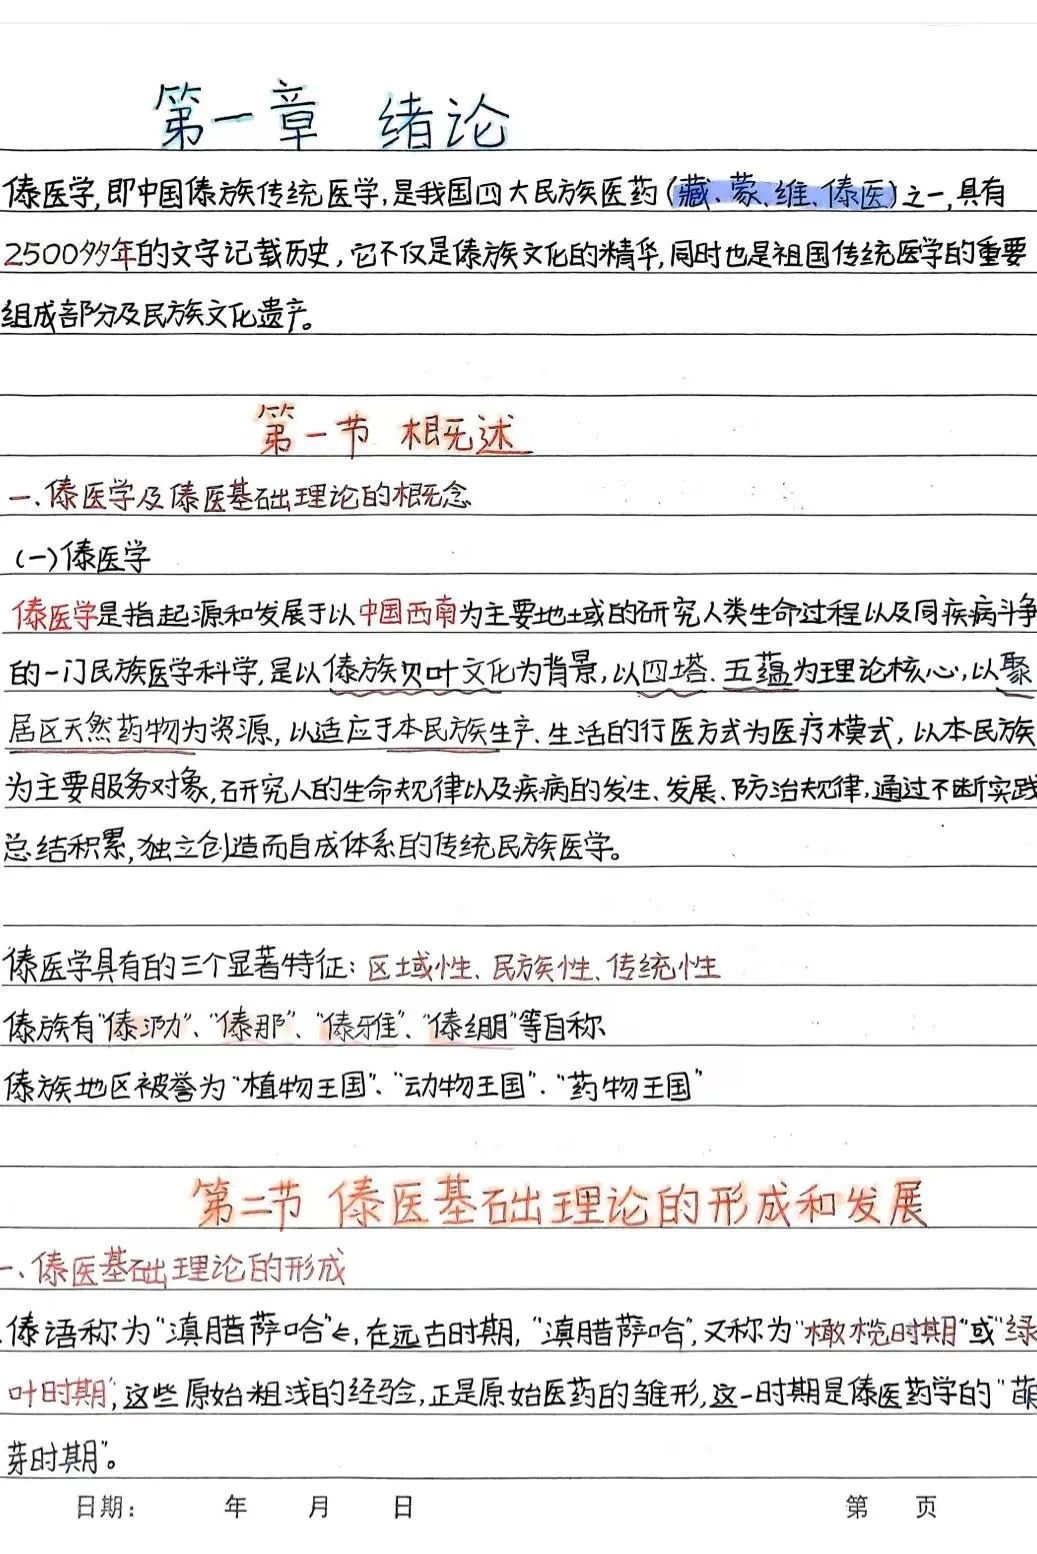 第一章 绪论
傣医学,即中国傣族传统医学,是我国四大民族医药(藏、蒙、维、傣医)之一,具有
2500多年的文字记载历史,它不仅是傣族文化的精华,同时也是祖国传统医学的重要
组成部分及民族文化遗产。
第一节 概述
一.傣医学及傣医基础理论的概念
(一)傣医学
傣医学是指起源和发展于以中国西南为主要地域的研究人类生命过程以及同疾病斗争
的一门民族医学科学,是以傣族贝叶文化为背景,以四塔、五蕴为理论核心,以聚
居区天然药物为资源,以适应于本民族生产、生活的行医方式为医疗模式,以本民族
为主要服务对象,研究人的生命规律以及疾病的发生、发展、防治规律,通过不断实践
总结积累,独立创造而自成体系的传统民族医学。
傣医学具有的三个显著特征:区域性、民族性、传统性
傣族有“傣泐”、“傣那”、“傣雅”、“傣绷”等自称
傣族地区被誉为“植物王国”、“动物王国”、“药物王国”
第二节 傣医基础理论的形成和发展
一、傣医基础理论的形成
傣语称为“滇腊萨哈”,在远古时期,“滇腊萨哈”,又称为“橄榄时期”或“绿
叶时期”,这些原始粗浅的经验,正是原始医药的雏形,这一时期是傣医药学的“萌
芽时期”。
日期: 年 月 日 第 页